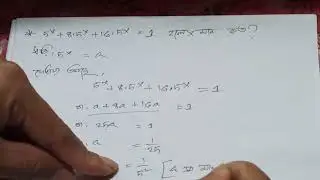 * 5ˣ + 8.5ˣ + 16.5ˣ = 1 হলে x মান কত?
ধরি, 5ˣ = a
5ˣ + 8.5ˣ + 16.5ˣ = 1
বা, a + 8a + 16a = 1
বা, 25a = 1
বা, a = 1/25
= 1/5² [a এর